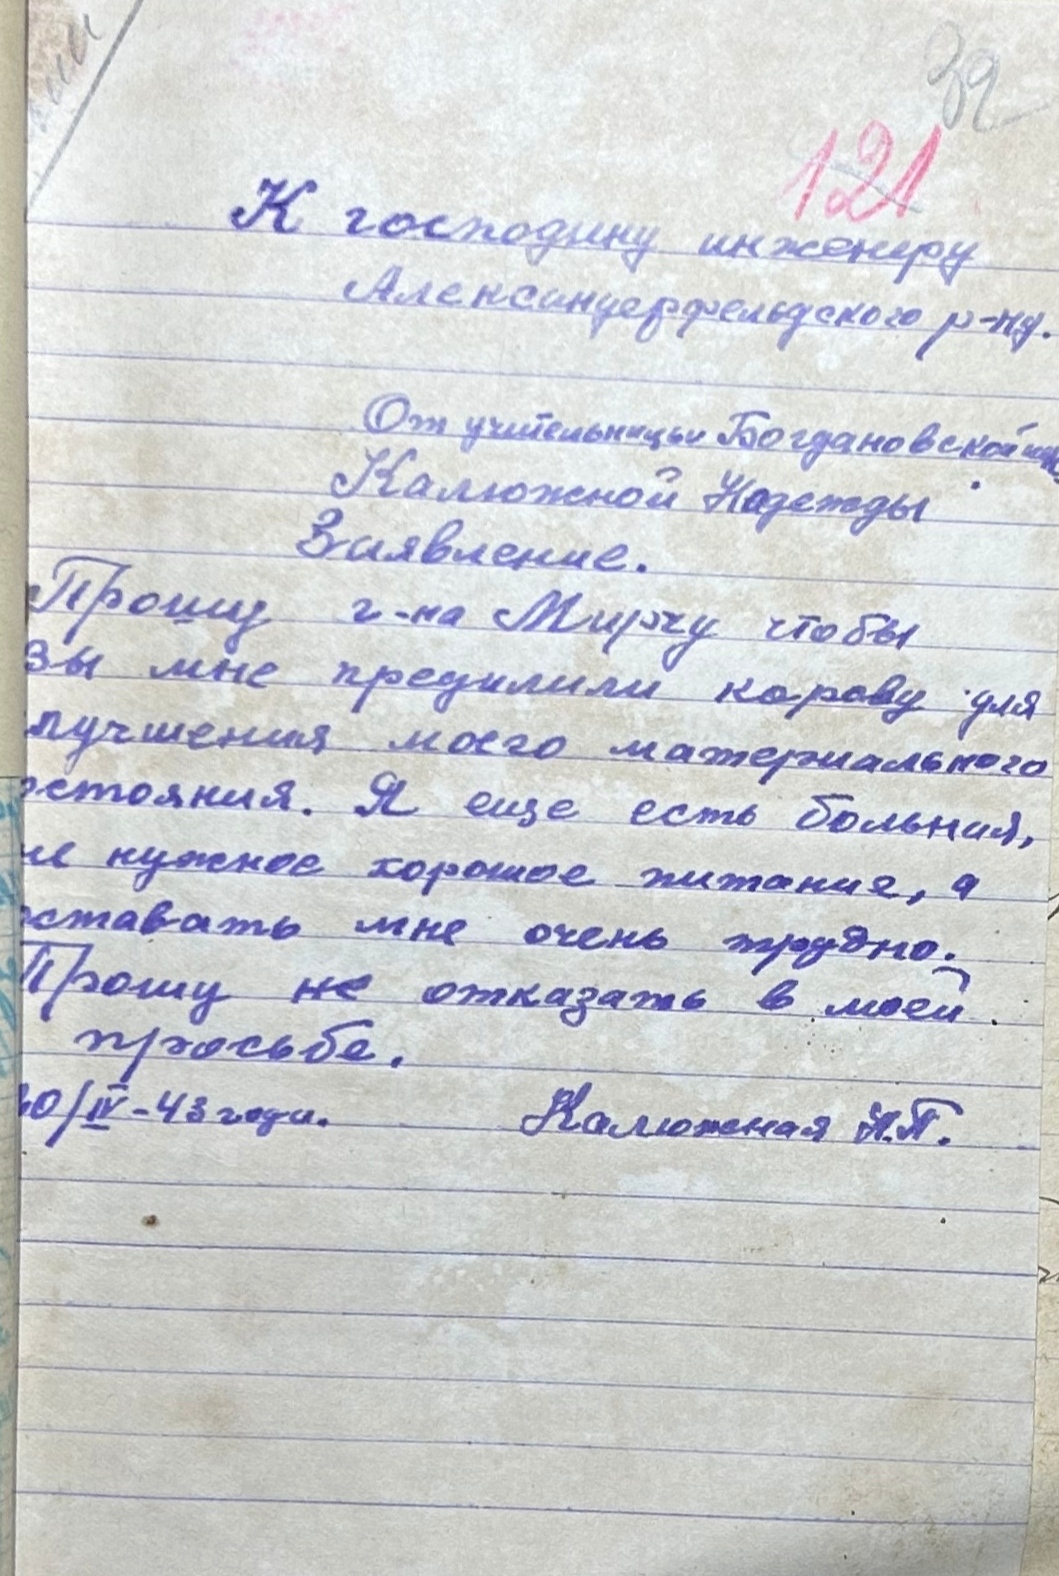 39
121
К господину инженеру
Александерфельдского р-на.
От учительницы Богдановской
Калюжной Надежды
Заявление.
Прошу г-на Мирчу чтобы
Вы мне предилили корову для
лучшения моего материального
остояния. Я еще есть больная,
не нужное хорошое питание, а
оставать мне очень трудно.
Прошу не отказать в моей
просьбе.
20/IV-43 года. Калюжная Н.П.